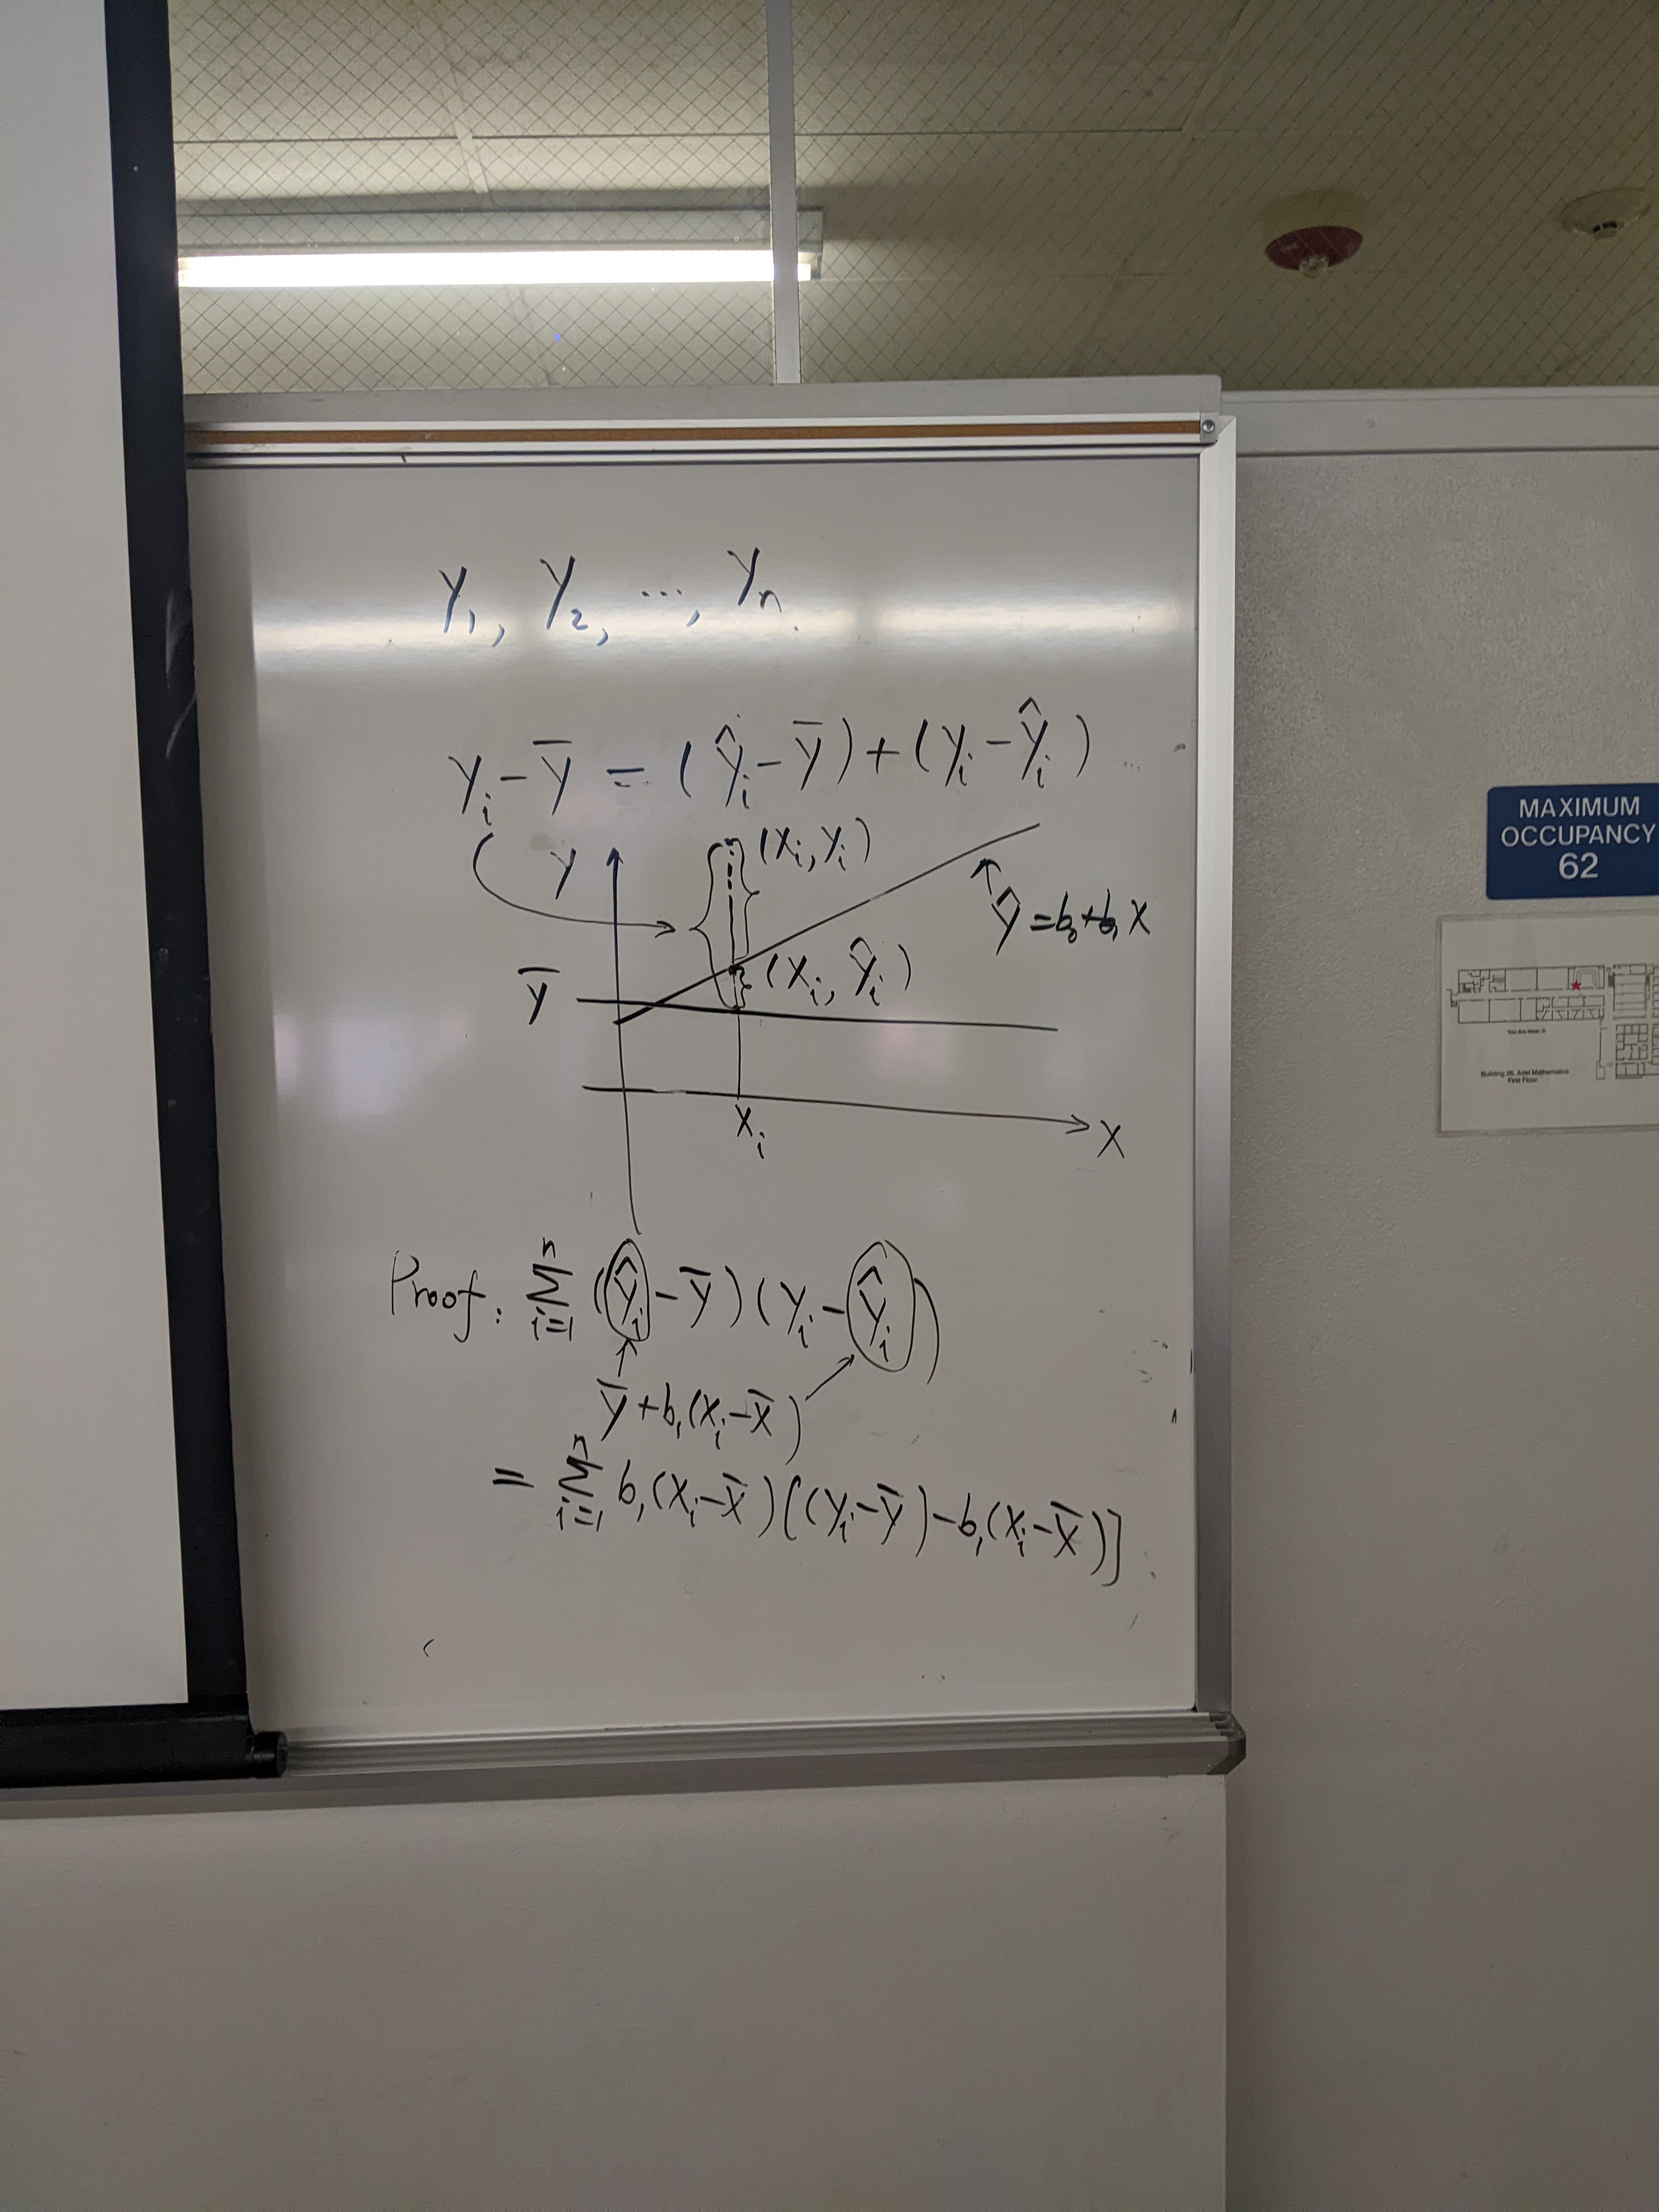 y₁, y₂, ..., yₙ.
yᵢ - ȳ = (ŷᵢ - ȳ) + (yᵢ - ŷᵢ)
y
(xᵢ, yᵢ)
ŷ = b₀ + b₁ x
ȳ
(xᵢ, ŷᵢ)
xᵢ
x
Proof: ∑ⁿᵢ₌₁ (ŷᵢ - ȳ)(yᵢ - ŷᵢ)
ȳ + b₁(xᵢ - x̄)
= ∑ⁿᵢ₌₁ b₁(xᵢ - x̄)[(yᵢ - ȳ) - b₁(xᵢ - x̄)]
MAXIMUM
OCCUPANCY
62
You Are Here
Building 26, Adel Mathematics
First Floor